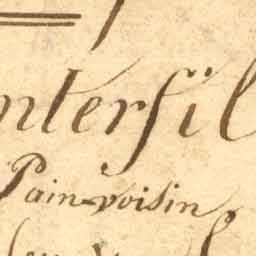 nterfil
Pain-voisin